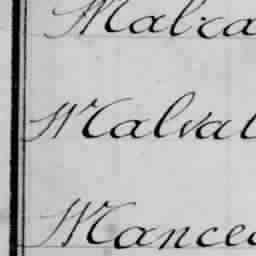 Malra
Malval
Mancea